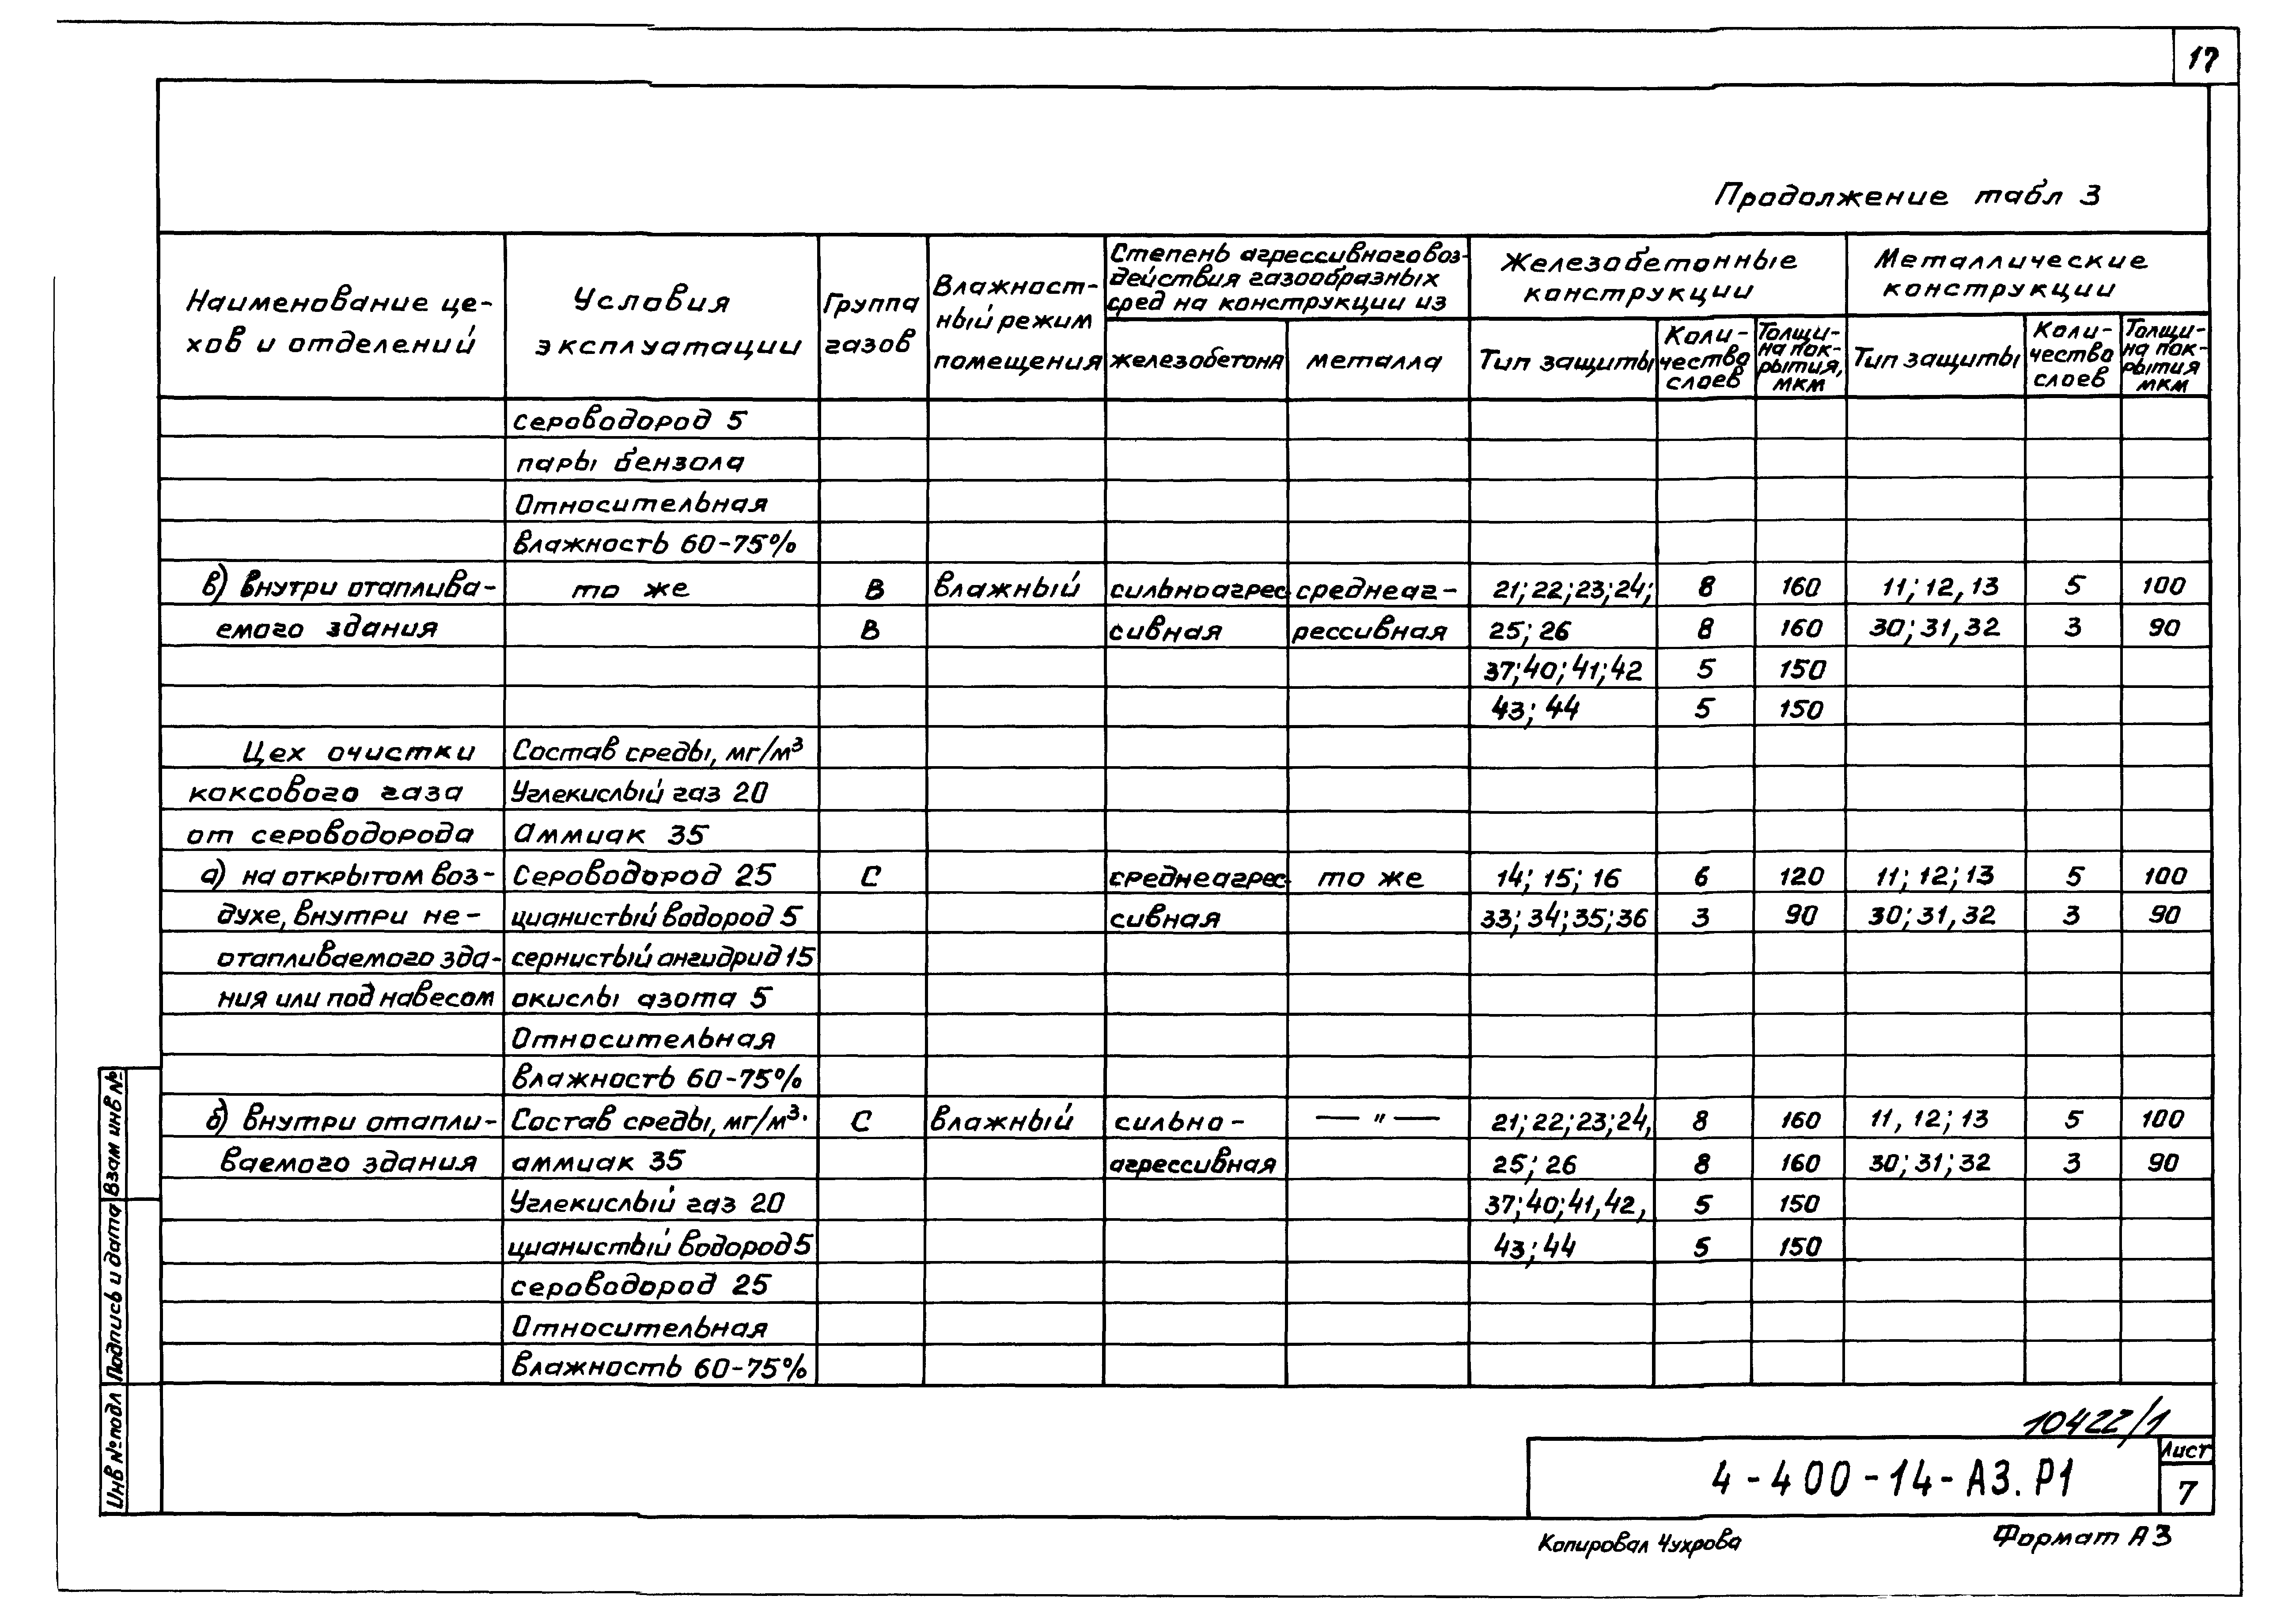 17
Продолжение табл 3
Наименование це-
хов и отделений
Условия
эксплуатации
Группа
газов
Влажност-
ный режим
помещения
Степень агрессивного воз-
действия газообразных
сред на конструкции из
железобетона
металла
Железобетонные
конструкции
Тип защиты
Коли-
чество
слоев
Толщи-
на пок-
рытия,
мкм
Металлические
конструкции
Тип защиты
Коли-
чество
слоев
Толщи-
на пок-
рытия
мкм
сероводород 5
пары бензола
Относительная
влажность 60-75%
в) внутри отаплива- то же В влажный сильноагрес среднеаг- 21; 22; 23; 24; 8 160 11; 12, 13 5 100
емого здания В сивная рессивная 25; 26 8 160 30; 31, 32 3 90
37; 40; 41; 42 5 150
43; 44 5 150
Цех очистки Состав среды, мг/м³
коксового газа Углекислый газ 20
от сероводорода аммиак 35
а) на открытом воз- Сероводород 25 С среднеагрес- то же 14; 15; 16 6 120 11; 12; 13 5 100
духе, внутри не- цианистый водород 5 сивная 33; 34; 35; 36 3 90 30; 31, 32 3 90
отапливаемого зда- сернистый ангидрид 15
ния или под навесом окислы азота 5
Относительная
влажность 60-75%
б) внутри отапли- Состав среды, мг/м³. С влажный сильно- — " — 21; 22; 23; 24, 8 160 11, 12; 13 5 100
ваемого здания аммиак 35 агрессивная 25; 26 8 160 30; 31; 32 3 90
Углекислый газ 20 37; 40; 41, 42, 5 150
цианистый водород 5 43; 44 5 150
сероводород 25
Относительная
влажность 60-75%
Взам инв №
Подпись и дата
Инв № подл
10422/1
4-400-14-А3.Р1
Лист
7
Копировал Чухрова
Формат А3